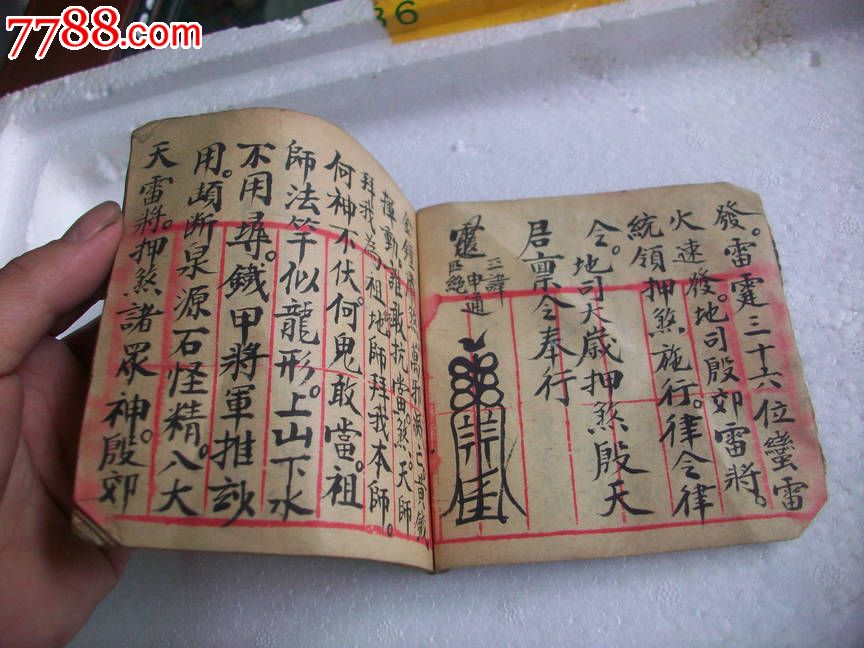 7788.com
36
發。雷霆三十六位蠻雷
火速發。地司殷郊雷將。
統領押煞施行。律令律
令。地司大歲押煞殷天
君稟令奉行
三諱
申通
師法竿似龍形。上山下水
何神不伏。何鬼敢當。祖
拜我為祖地師拜我本師。
揮動。誰敢抗當煞。天師
不用尋。鐵甲將軍推
用。斷泉源石怪精。八大
天雷將。押煞諸眾神殷郊